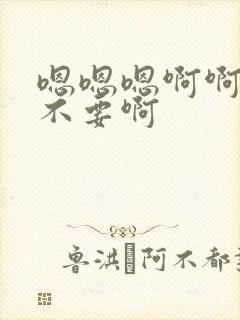 嗯嗯嗯啊啊
不要啊
鲁洪 阿不都